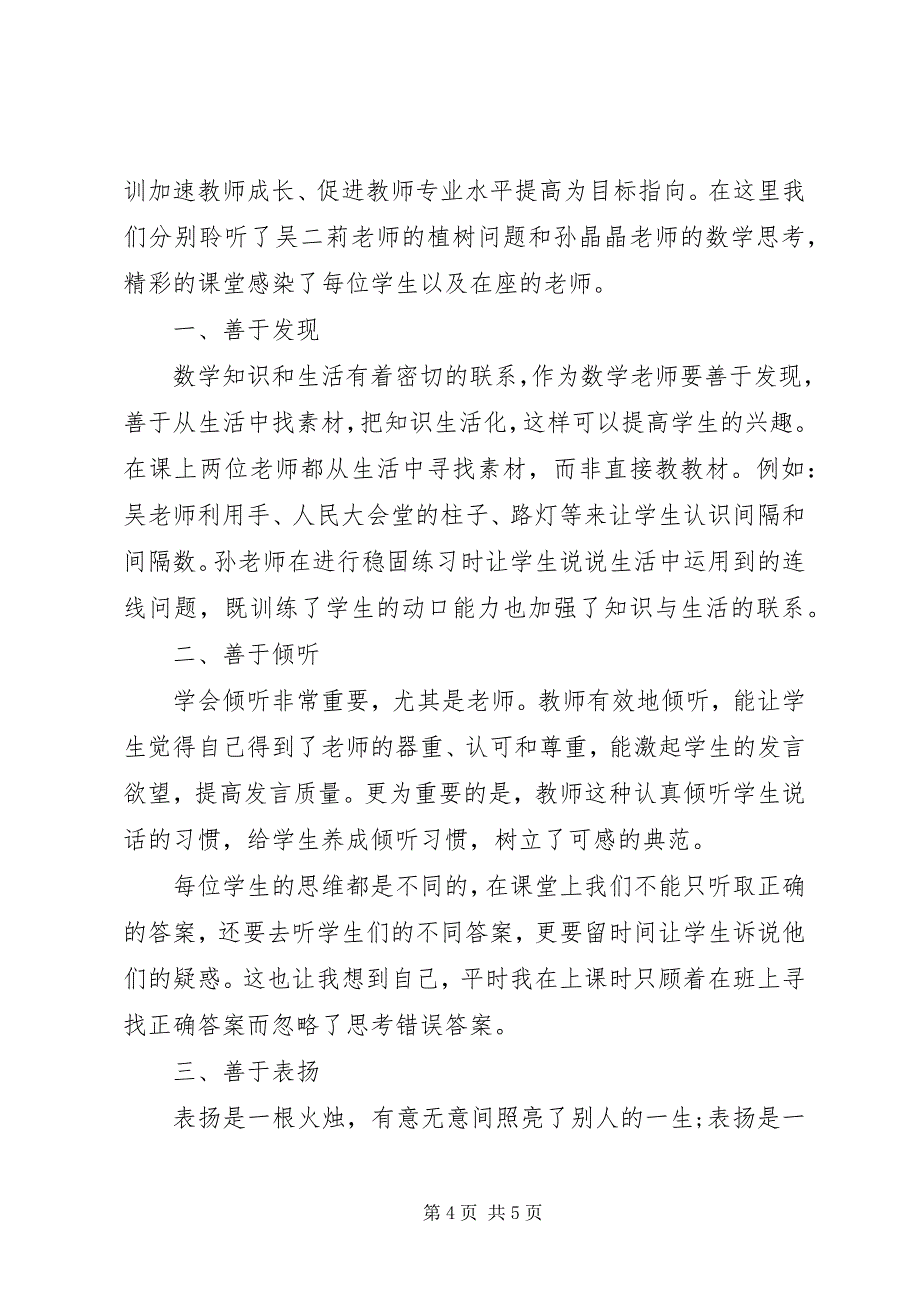 训加速教师成长、促进教师专业水平提高为目标指向。在这里我
们分别聆听了吴二莉老师的植树问题和孙晶晶老师的数学思考，
精彩的课堂感染了每位学生以及在座的老师。
一、善于发现
数学知识和生活有着密切的联系，作为数学老师要善于发现，
善于从生活中找素材，把知识生活化，这样可以提高学生的兴趣。
在课上两位老师都从生活中寻找素材，而非直接教教材。例如：
吴老师利用手、人民大会堂的柱子、路灯等来让学生认识间隔和
间隔数。孙老师在进行稳固练习时让学生说说生活中运用到的连
线问题，既训练了学生的动口能力也加强了知识与生活的联系。
二、善于倾听
学会倾听非常重要，尤其是老师。教师有效地倾听，能让学
生觉得自己得到了老师的器重、认可和尊重，能激起学生的发言
欲望，提高发言质量。更为重要的是，教师这种认真倾听学生说
话的习惯，给学生养成倾听习惯，树立了可感的典范。
每位学生的思维都是不同的，在课堂上我们不能只听取正确
的答案，还要去听学生们的不同答案，更要留时间让学生诉说他
们的疑惑。这也让我想到自己，平时我在上课时只顾着在班上寻
找正确答案而忽略了思考错误答案。
三、善于表扬
表扬是一根火烛，有意无意间照亮了别人的一生;表扬是一
第 4 页 共 5 页